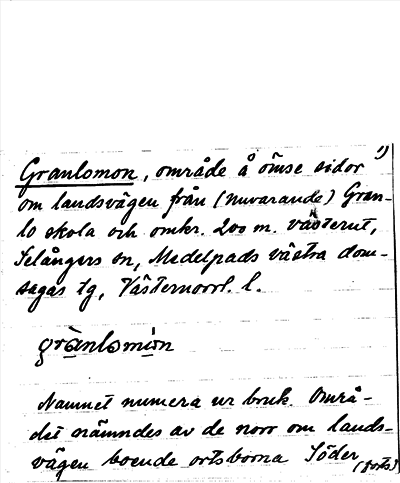 1)
Granlomon, område å ömse sidor
om landsvägen från (nuvarande) Gran-
lo skola och omkr. 200 m. västerut,
Selångers sn, Medelpads västra dom-
sagas tg, Västernorrl. l.
grànlomòn
Namnet numera ur bruk. Områ-
det nämndes av de norr om lands-
vägen boende ortsborna Söder
(forts.)